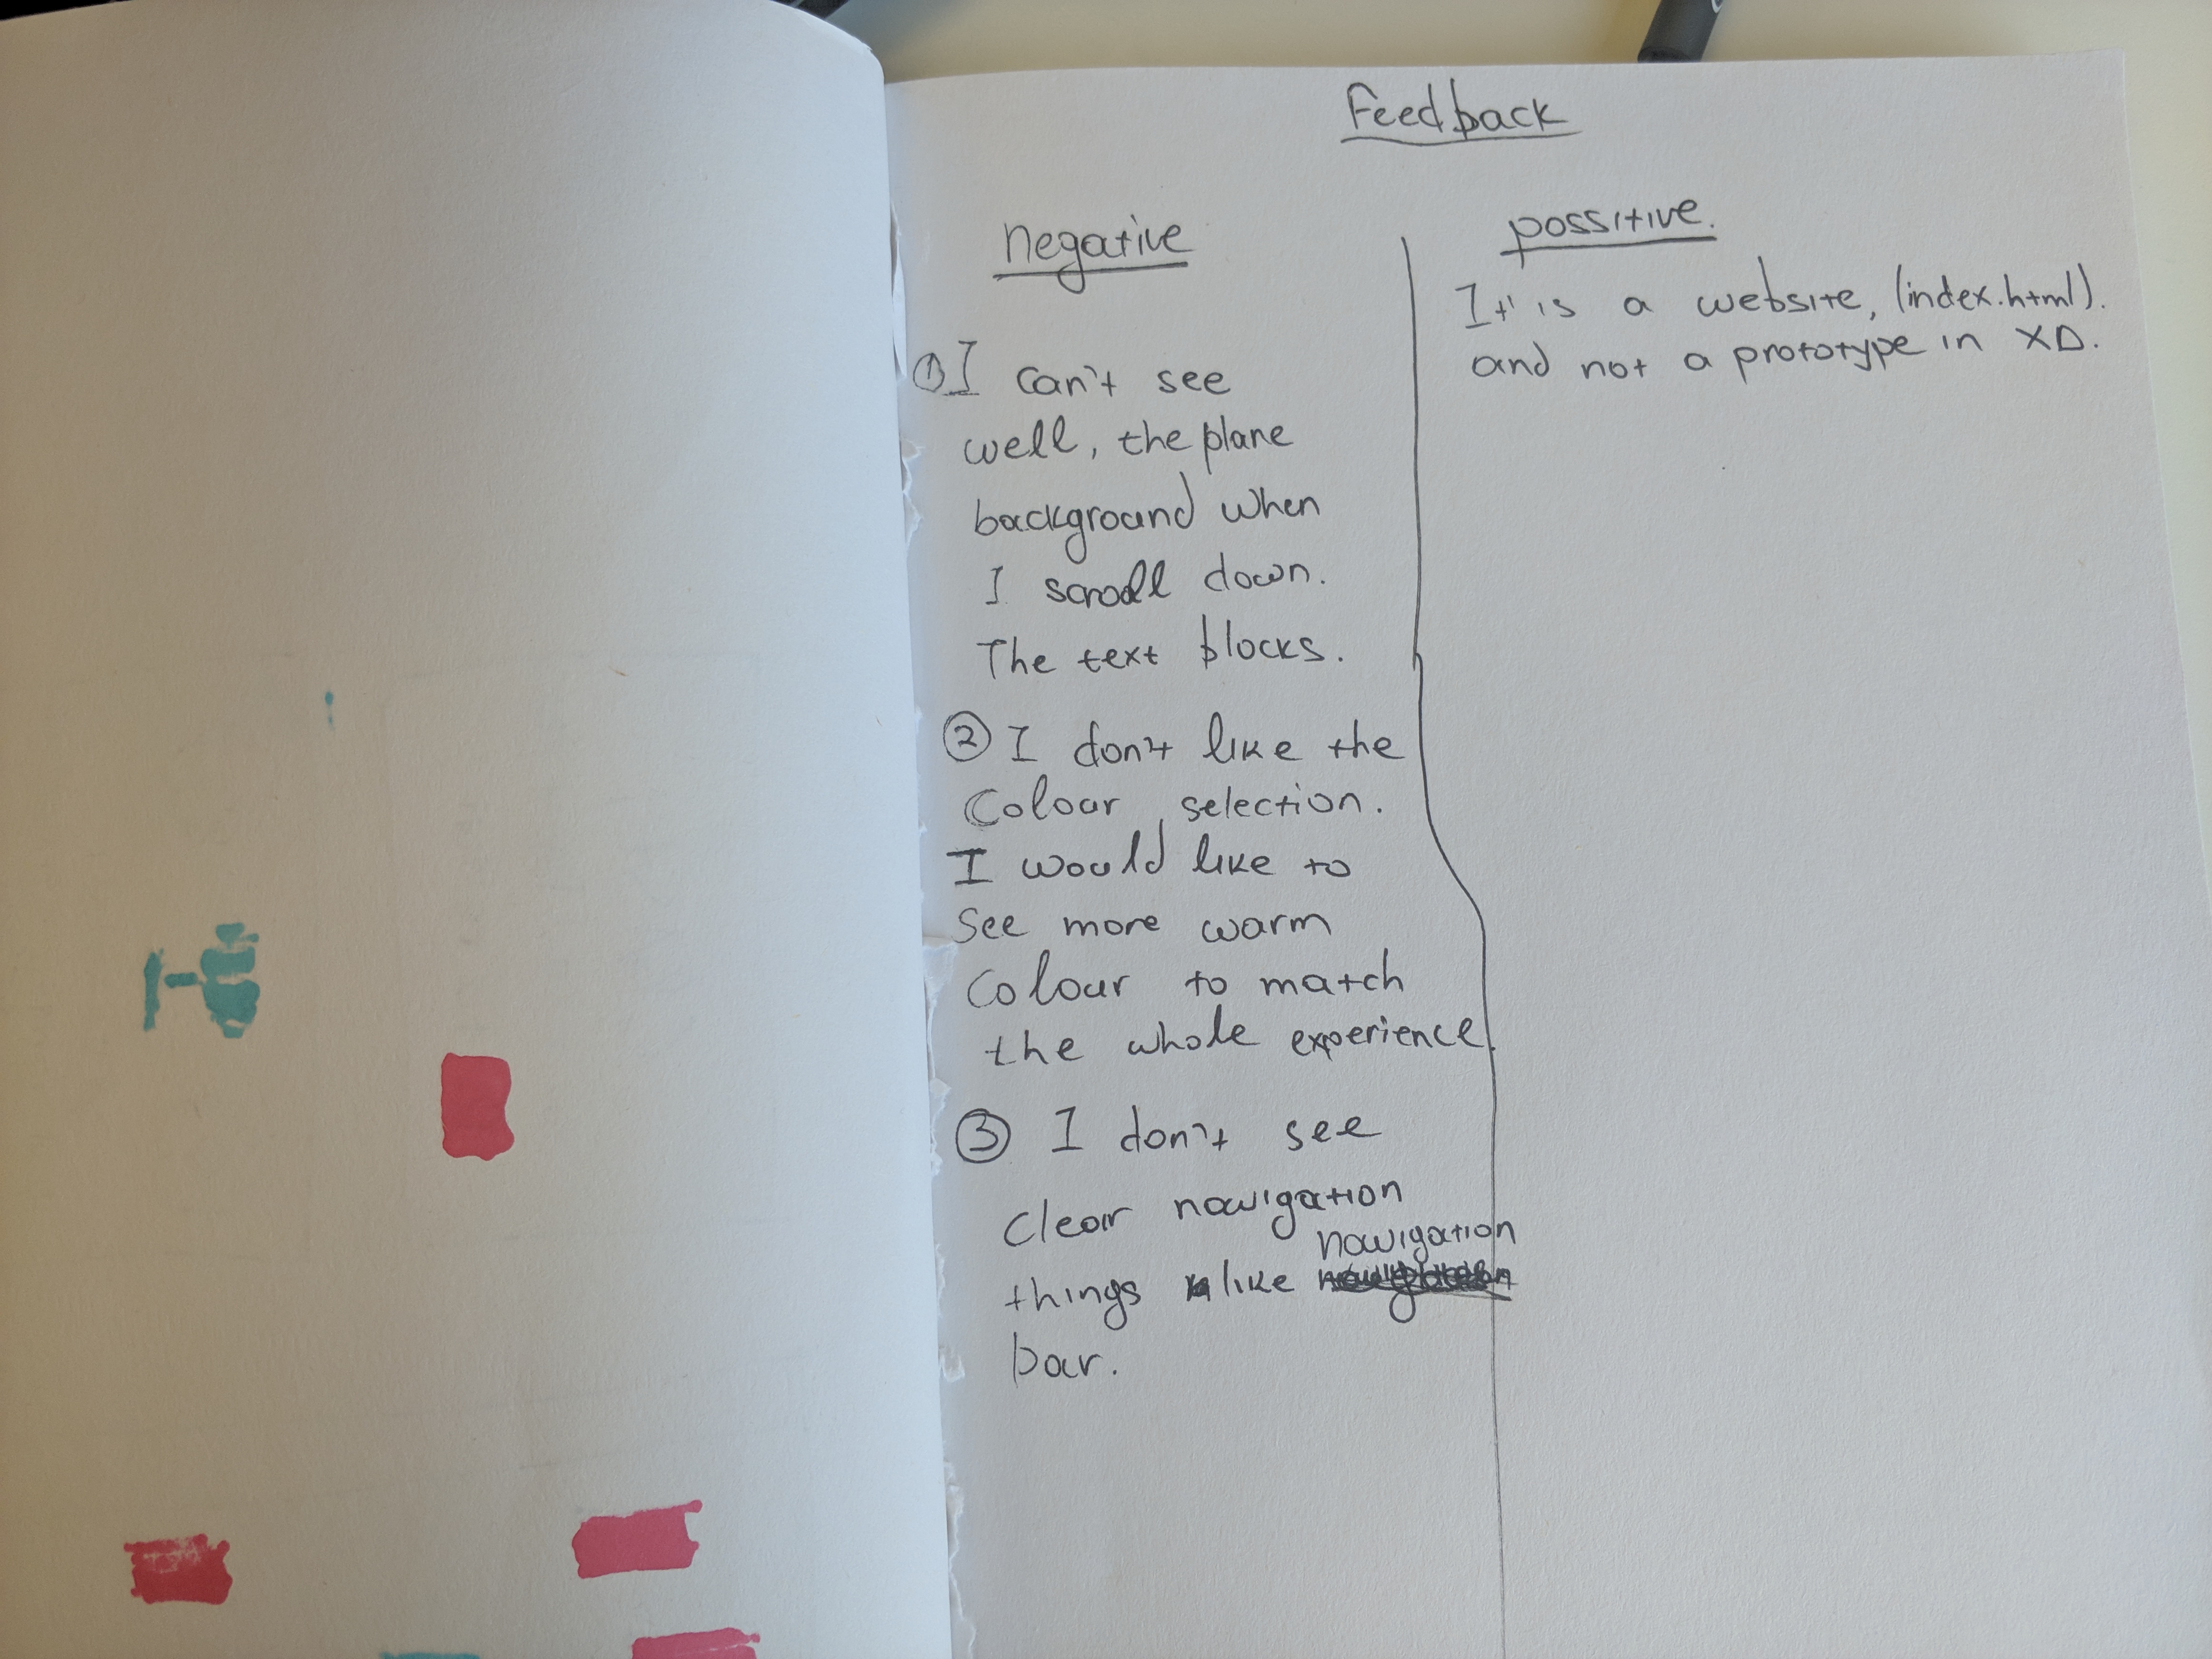 Feedback
negative
① I can't see
well, the plane
background when
I scroll down.
The text blocks.
② I don't like the
Colour selection.
I would like to
see more warm
Colour to match
the whole experience.
③ I don't see
clear nawigation
things like nawigation
bar.
possitive.
It is a website, (index.html).
and not a prototype in XD.